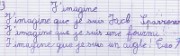 J'imagine
J'imagine que je suis Jack Sparrow
J'imagine que je suis une fourmi
J'imagine que je suis un aigle.